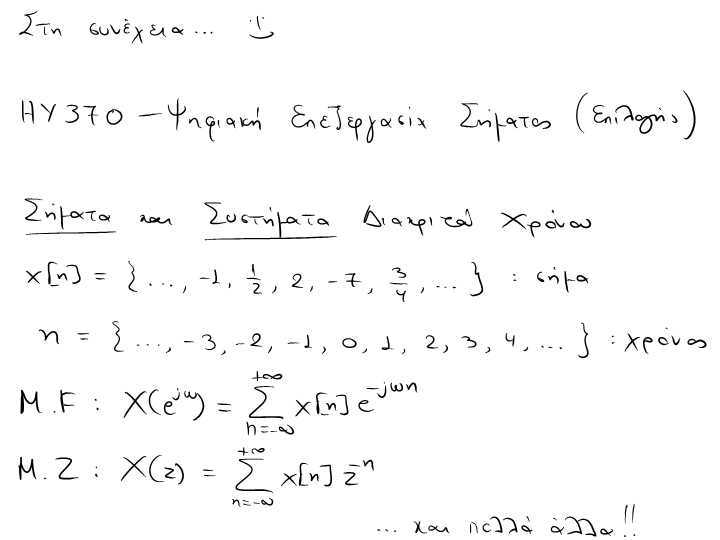 Στη συνέχεια... :)
ΗΥ370 – Ψηφιακή Επεξεργασία Σήματος (Επιλογής)
Σήματα και Συστήματα Διακριτού Χρόνου
x[n] = { ..., -1, 1/2, 2, -7, 3/4, ... } : σήμα
n = { ..., -3, -2, -1, 0, 1, 2, 3, 4, ... } : χρόνος
M.F : X(e^{jω}) = Σ_{n=-∞}^{+∞} x[n] e^{-jωn}
M.Z : X(z) = Σ_{n=-∞}^{+∞} x[n] z^{-n}
... και πολλά άλλα!!